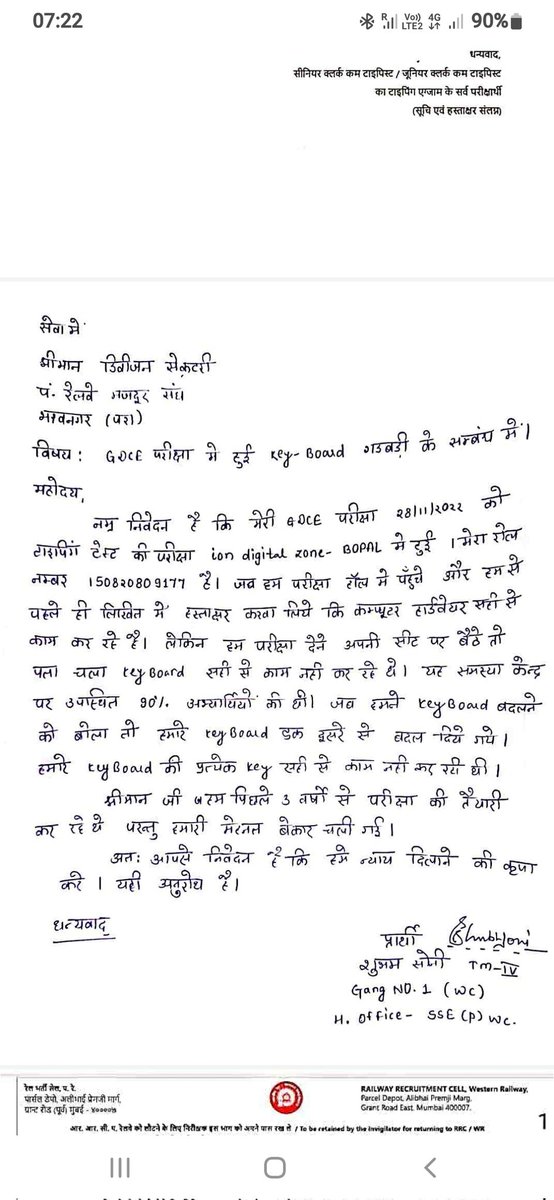 07:22
R Vo)) 4G
LTE2
90%
धन्यवाद,
सीनियर क्लर्क कम टाइपिस्ट / जूनियर क्लर्क कम टाइपिस्ट
का टाइपिंग एग्जाम के सर्व परीक्षार्थी
(सूचि एवं हस्ताक्षर संलग्न)
सेवा में
श्रीमान डिवीजन सेक्रटरी
पं. रेलवे मजदूर संघ
भावनगर (परा)
विषय : GDCE परीक्षा मे हुई key-Board गडबडी के सम्बंध में।
महोदय,
नम्र निवेदन है कि मेरी GDCE परीक्षा 28/11/2022 को
टाइपिंग टेस्ट की परीक्षा ion digital zone- BOPAL मे हुई । मेरा रोल
नम्बर 150820809177 है। जब हम परीक्षा हॉल मे पहुँचे और हम से
पहले ही लिखित मे हस्ताक्षर करवा लिये कि कम्प्यूटर हार्डवेयर सही से
काम कर रहे है। लेकिन हम परीक्षा देने अपनी सीट पर बैठे तो
पता चला keyBoard सही से काम नही कर रहे थे। यह समस्या केन्द्र
पर उपास्थित 90% अभ्यार्थियो की थी। जब हमने keyBoard बदलने
को बोला तो हमारे keyBoard इक दुसरे से बदल दिये गये।
हमारे keyBoard की प्रत्येक key सही से काम नही कर रही थी।
श्रीमान जी हम पिछले 3 वर्षो से परीक्षा की तैयारी
कर रहे थे परन्तु हमारी मेहनत बेकार चली गई।
अतः आपसे निवेदन है कि हमे न्याय दिलाने की कृपा
करे । यही अनुरोध है।
धन्यवाद
प्रार्थी
शुभम सोनी TM-IV
Gang NO. 1 (WC)
H. Office- SSE (P) WC.
रेल भर्ती सेल, प. रे.
पार्सल डेपो, अलीभाई प्रेमजी मार्ग,
ग्रान्ट रोड (पूर्व) मुंबई - ४००००७
RAILWAY RECRUITMENT CELL, Western Railway,
Parcel Depot, Alibhai Premji Marg,
Grant Road East, Mumbai 400007.
1
आर. आर. सी. प. रेलवे को लौटने के लिए निरीक्षक इस भाग को अपने पास रख ले / To be retained by the Invigilator for returning to RRC / WR